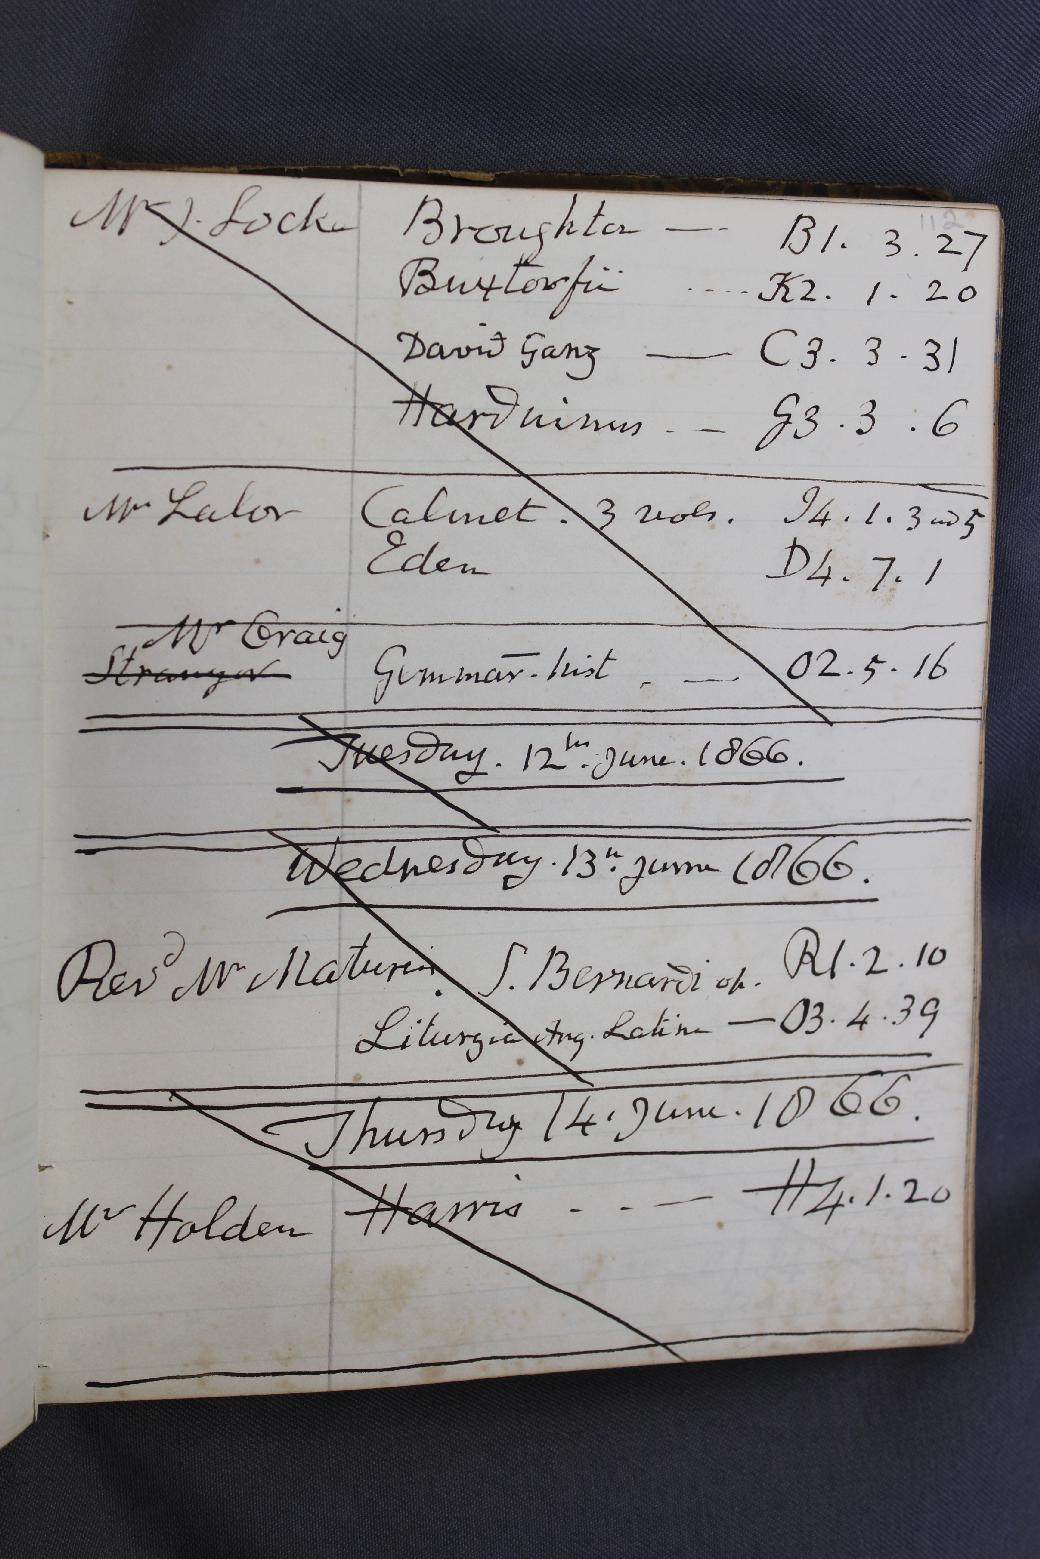 112
Mr J. Locke Broughton — B1. 3. 27
Buxtorfii .... K2. 1. 20
David Ganz — C3. 3. 31
Harduinus - — G3. 3. 6
Mr Lalor Calmet. 3 vols. I4. 1. 3 and 5
Eden D4. 7. 1
Mr Craig
Stranger Gemmar. hist - — O2. 5. 16
Tuesday. 12th. June. 1866.
Wednesday. 13th. June 1866.
Revd Mr Maturin. S. Bernardi op. R1. 2. 10
Liturgia Ang. Latine — O3. 4. 39
Thursday 14. June. 1866.
Mr Holden Harris - - — H4. 1. 20